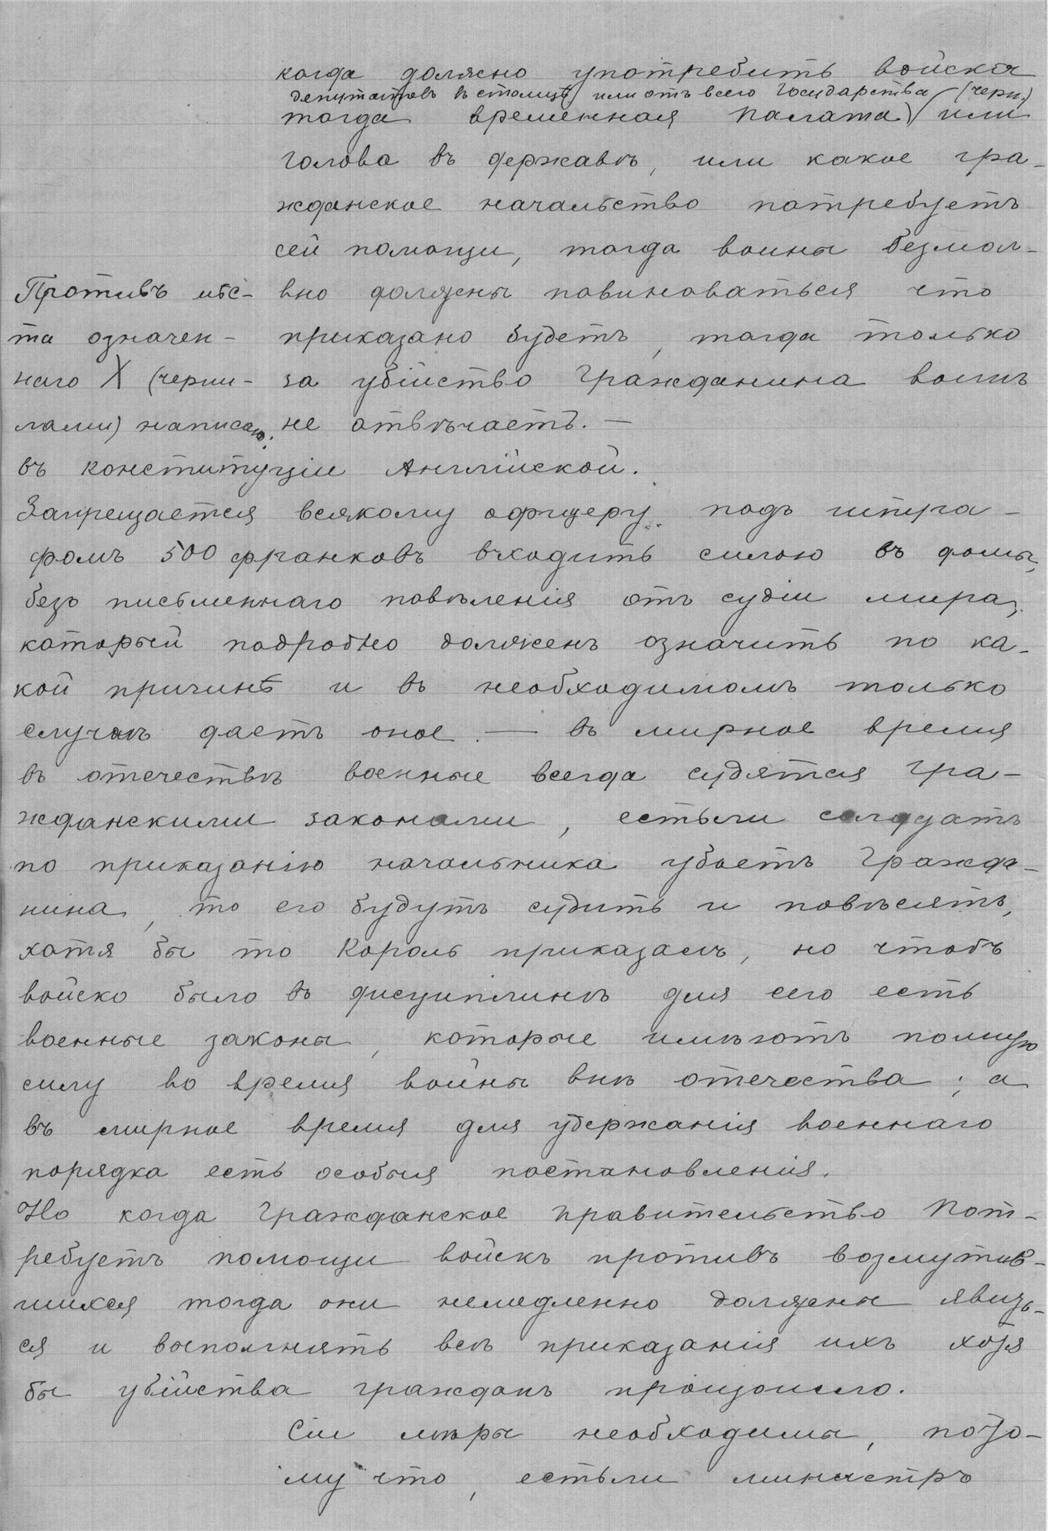 когда должно употребить войска
депутатовъ въ столицѣ или отъ всего Государства (черн.)
тогда временная палата) или
голова въ державѣ, или какое гра-
жданское начальство потребуетъ
сей помощи, тогда воины безмол-
вно должны повиноваться что
приказано будетъ, тогда только
за убійство Гражданина воинъ
не отвѣчаетъ. —
Противъ мѣс-
та означен-
наго X (черни-
лами) написано:
въ конституціи Англійской.
Запрещается всякому офицеру подъ штра-
фомъ 500 франковъ входить силою въ домы,
безъ письменнаго повѣленія отъ судіи мира,
который подробно долженъ означить по ка-
кой причинѣ и въ необходимомъ только
случаѣ дастъ оное. — въ мирное время
въ отечествѣ военные всегда судятся гра-
жданскими законами, естьли солдатъ
по приказанію начальника убьетъ Гражда-
нина, то его будутъ судить и повѣсятъ,
хотя бы то Король приказалъ, но чтобъ
войско было въ дисциплинѣ для сего есть
военные законы, которые имѣютъ полную
силу во время войны внѣ отечества; а
въ мирное время для удержанія военнаго
порядка есть особыя постановленія.
Но когда Гражданское правительство пот-
ребуетъ помощи войскъ противъ возмутив-
шихся тогда они немедленно должны явить-
ся и выполнять всѣ приказанія ихъ хотя
бы убійства гражданъ произошло.
Сіи мѣры необходимы, пото-
му что, естьли министръ